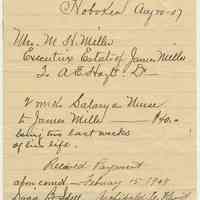 Hoboken Aug 20-07
Mrs. M. H. Miller
Executrix Estate of James Miller
To A. E. Hoyt Dr.
2 weeks Salary as Nurse
to James Miller — $40.00
being two last weeks
of his life.
Received Payment
February 15 1908